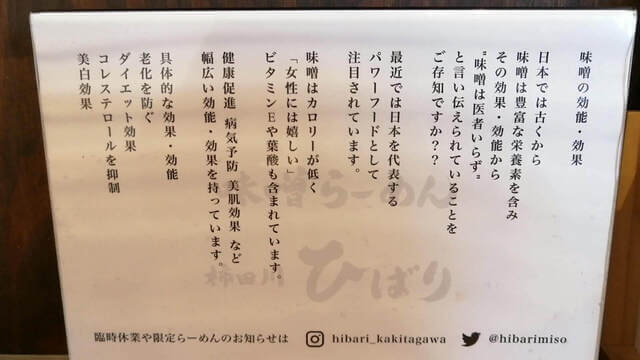 味噌の効能・効果
日本では古くから
味噌は豊富な栄養素を含み
その効果・効能から
“味噌は医者いらず”
と言い伝えられていることを
ご存知ですか？？
最近では日本を代表する
パワーフードとして
注目されています。
味噌はカロリーが低く
「女性には嬉しい」
ビタミンEや葉酸も含まれています。
健康促進 病気予防 美肌効果 など
幅広い効能・効果を持っています。
具体的な効果・効能
老化を防ぐ
ダイエット効果
コレステロールを抑制
美白効果
味噌らーめん
柿田川 ひばり
臨時休業や限定らーめんのお知らせは hibari_kakitagawa @hibarimiso